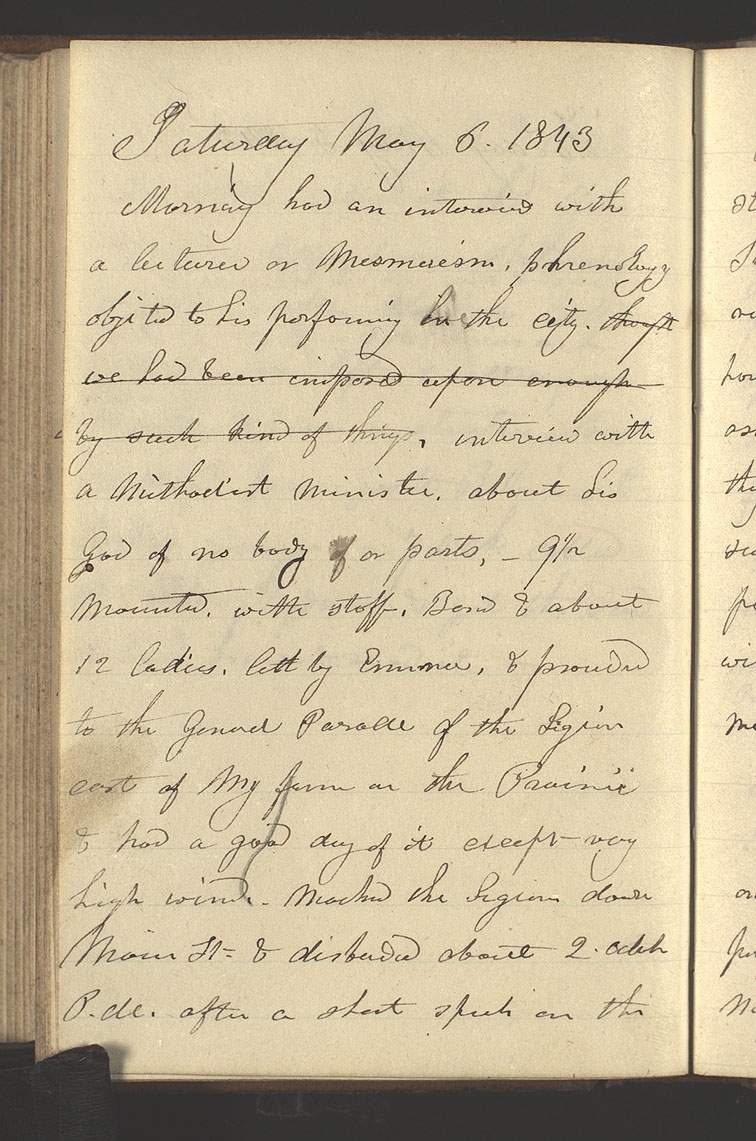 Saturday May 6. 1843
Morning had an interview with
a lecturer on Mesmerism. phrenology
objected to his performing in the city. thought
we had been imposed upon enough
by such kind of things, interview with
a Methodist minister. about his
God of no body or parts, - 9 1/2
Mounted. with staff. Band & about
12 ladies. lett by Emma, & proceeded
to the General Parade of the Legion
east of My farm on the Prairie
& had a good day of it except very
high wind. Marched the Legion down
Main St= & disbanded about 2. oclock
P.M. after a short speech on the